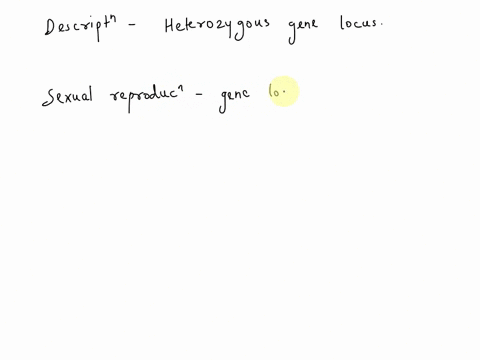 Descriptⁿ - Heterozygous gene locus.
Sexual reproducⁿ - gene lo